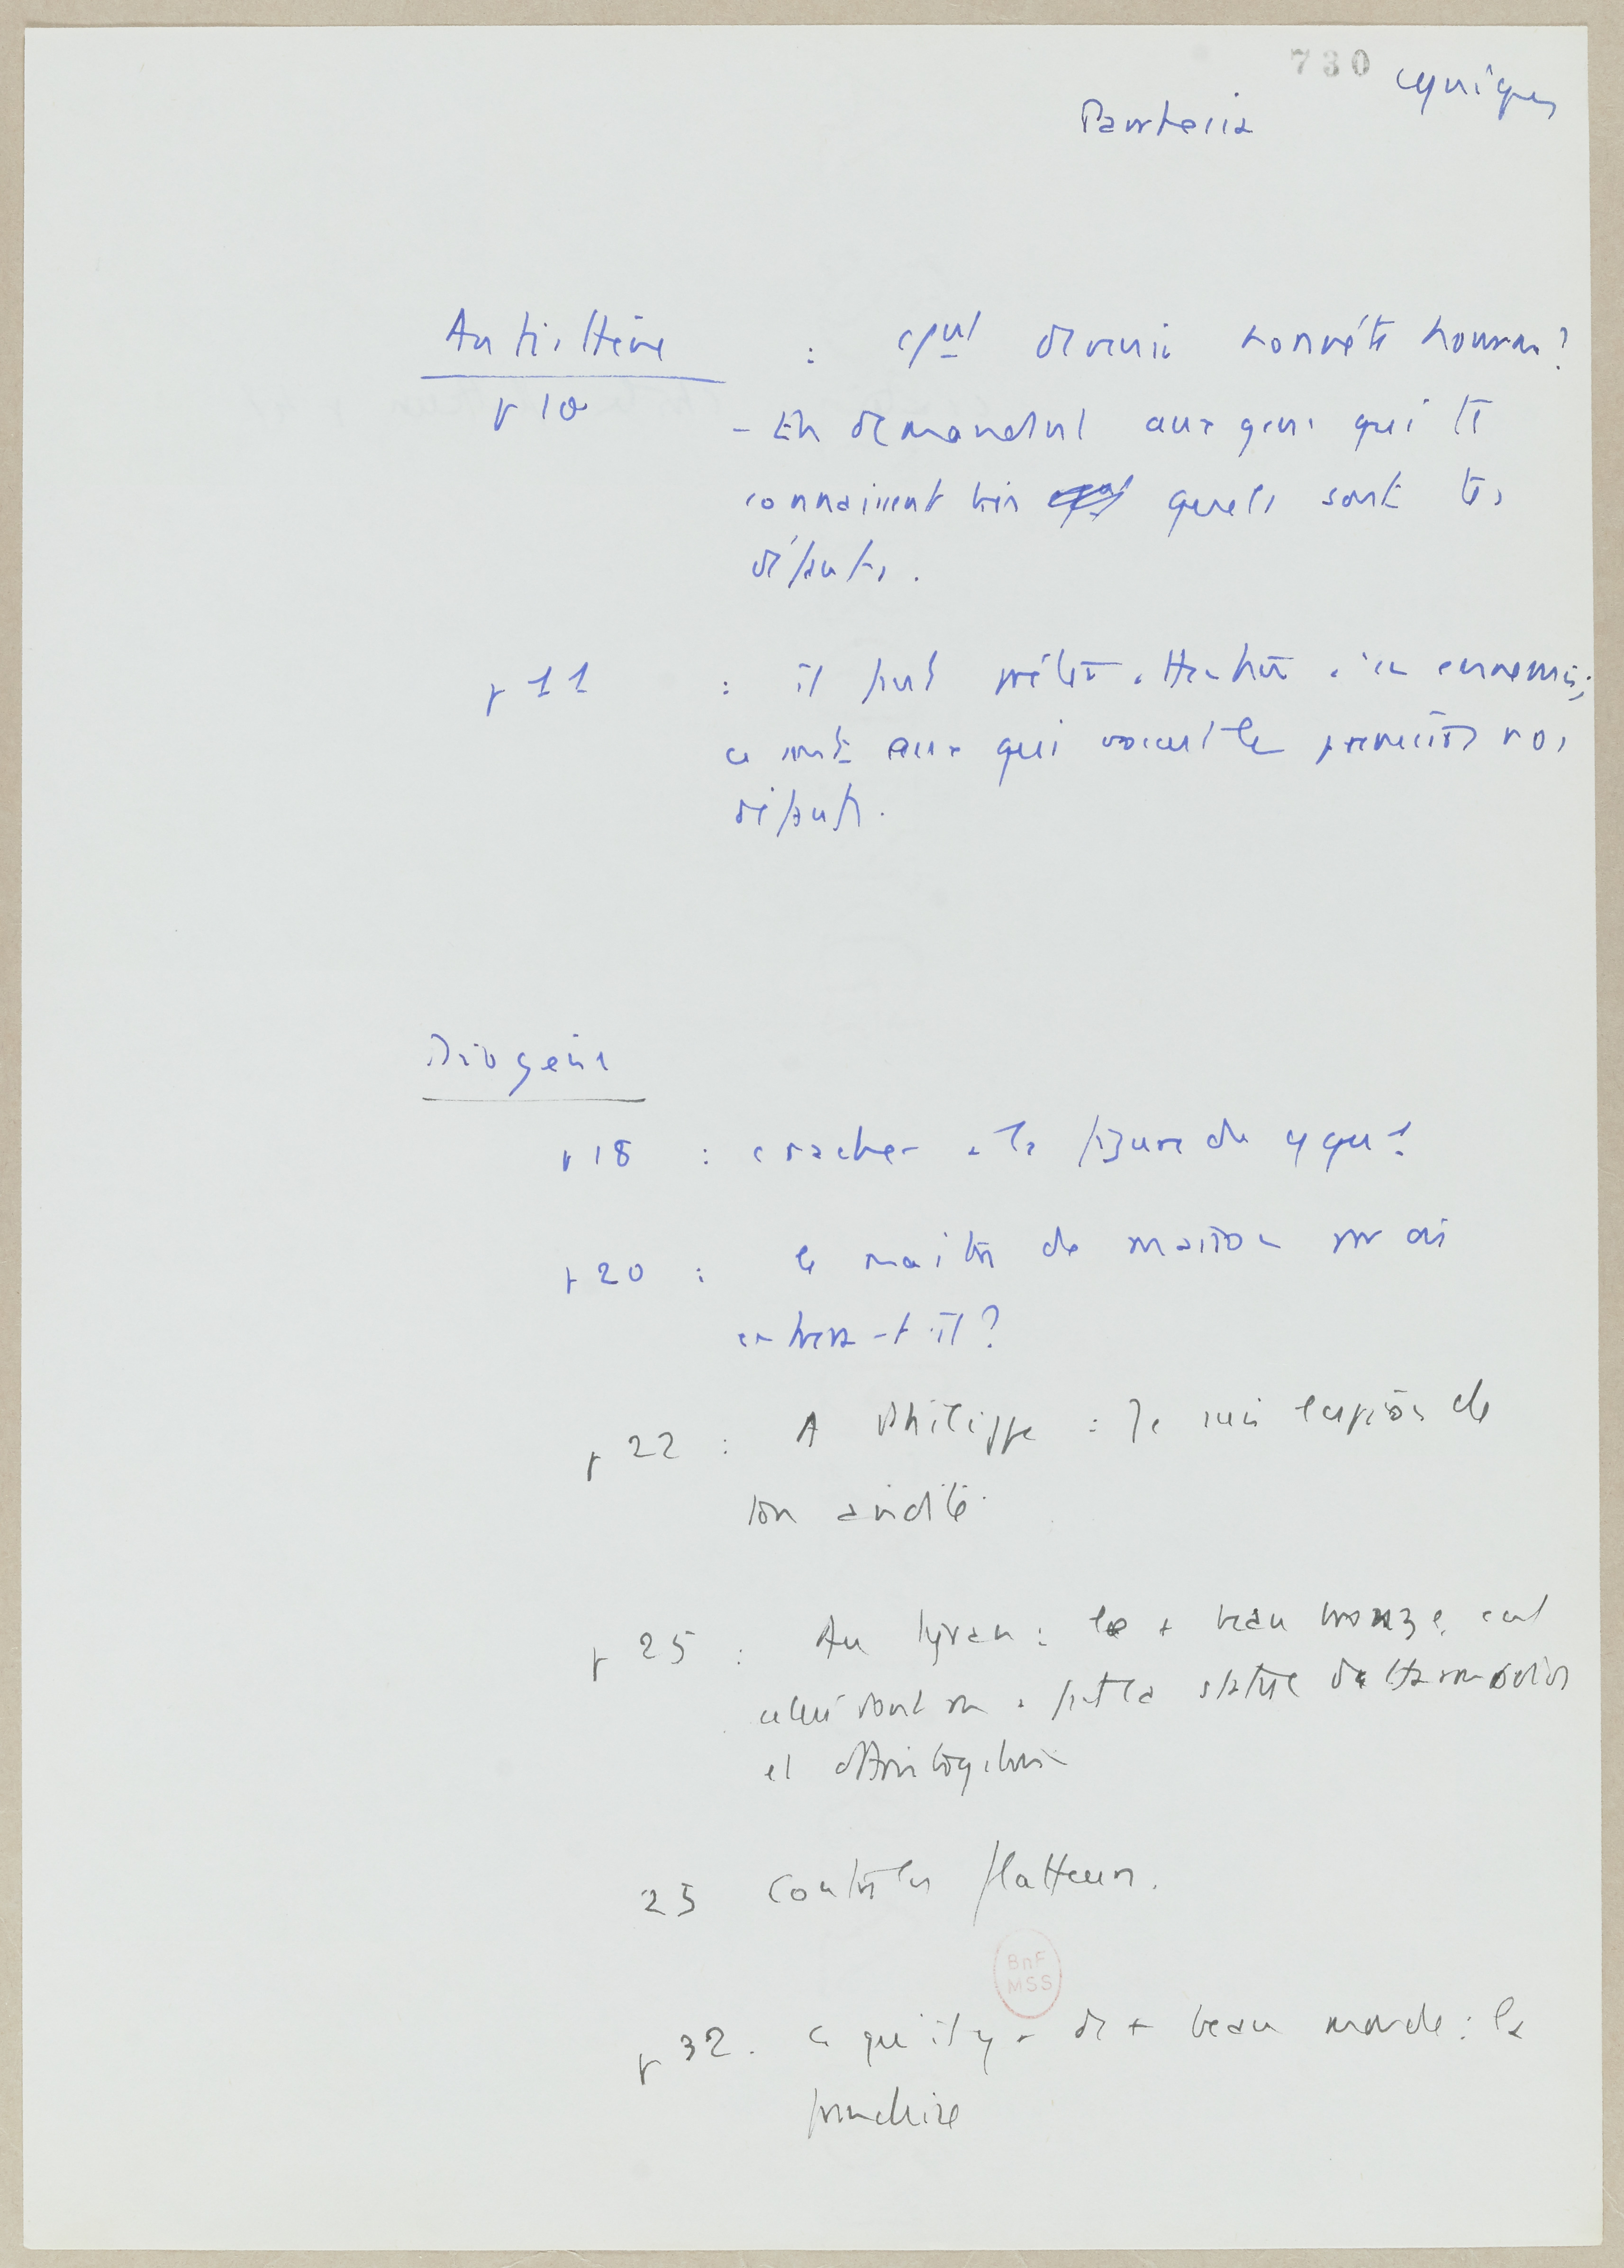 730 cyniques
Parrhesia
Antisthène : cput devenir honnête homme ?
p 10
- En demandant aux gens qui te
connaissent bien quels sont tes
défauts.
p 11 : il faut prêter attention à ses ennemis ;
ce sont eux qui voient les premiers vos
défauts.
Diogène
p 18 : cracher à la figure de qqu1
p 20 : le maître de maison par où
entrera-t-il ?
p 22 : A Philippe : Je suis l'espion de
ton avidité.
p 25 : Au tyran : le + beau bronze, c'est
celui dont on a fait la statue de Harmodios
et d'Aristogiton
25 Contre les flatteurs.
p 32. Ce qu'il y a de + beau monde : la
franchise
BnF
MSS